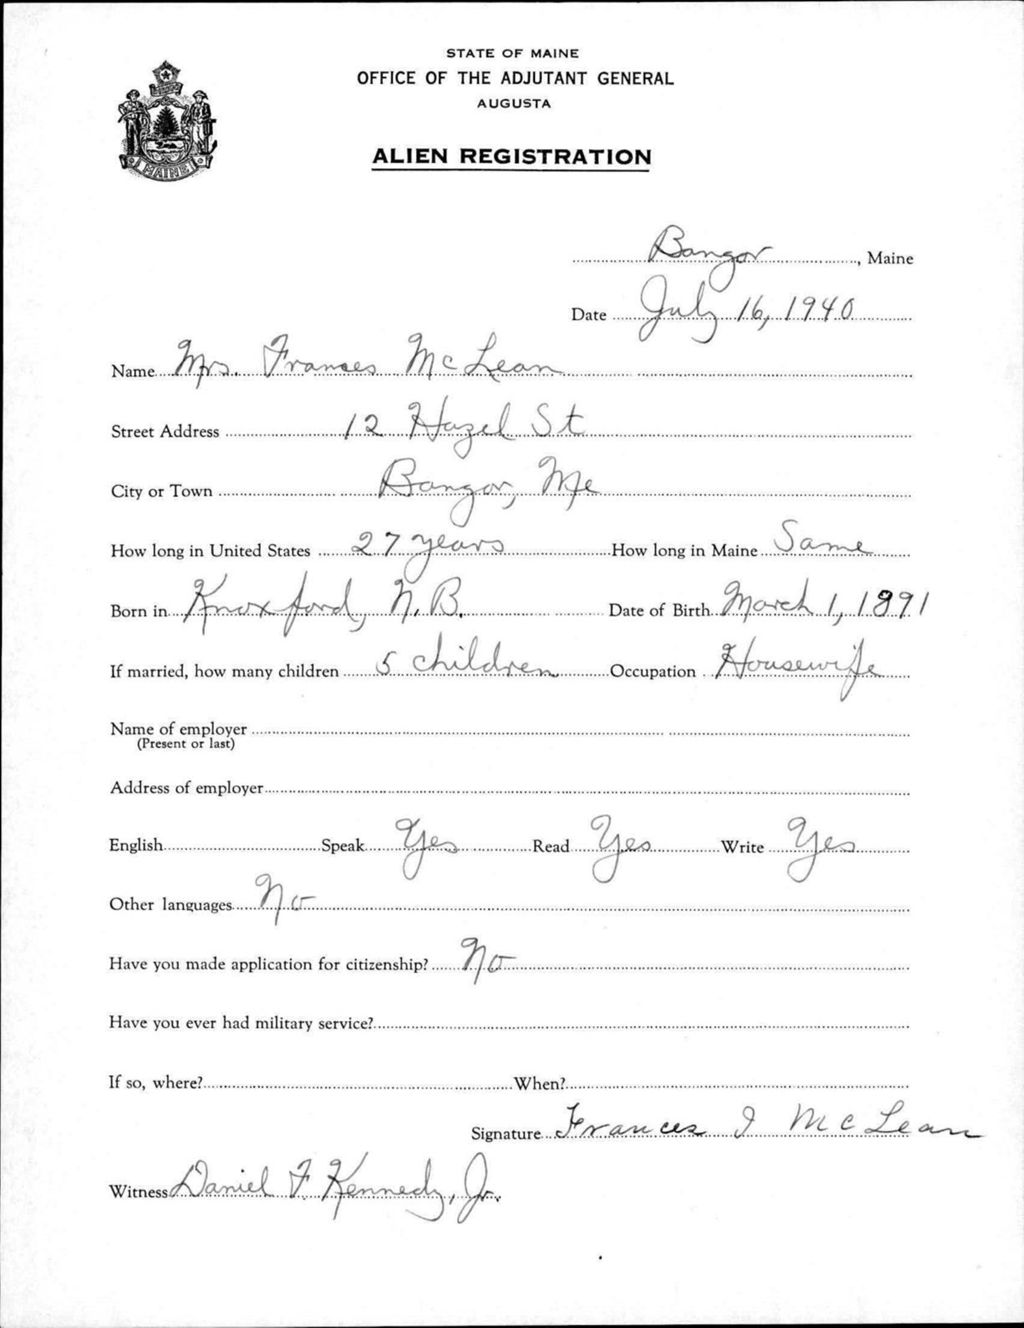 STATE OF MAINE
OFFICE OF THE ADJUTANT GENERAL
AUGUSTA
ALIEN REGISTRATION
MAINE
Bangor, Maine
Date July 16, 1940
Name Mrs. Frances McLean
Street Address 12 Hazel St
City or Town Bangor, Me
How long in United States 27 years How long in Maine Same
Born in Knoxford, N.B. Date of Birth March 1, 1891
If married, how many children 5 children Occupation Housewife
Name of employer
(Present or last)
Address of employer
English Speak Yes Read Yes Write Yes
Other languages No
Have you made application for citizenship? No
Have you ever had military service?
If so, where? When?
Signature Frances I McLean
Witness Daniel F. Kennedy, Jr.